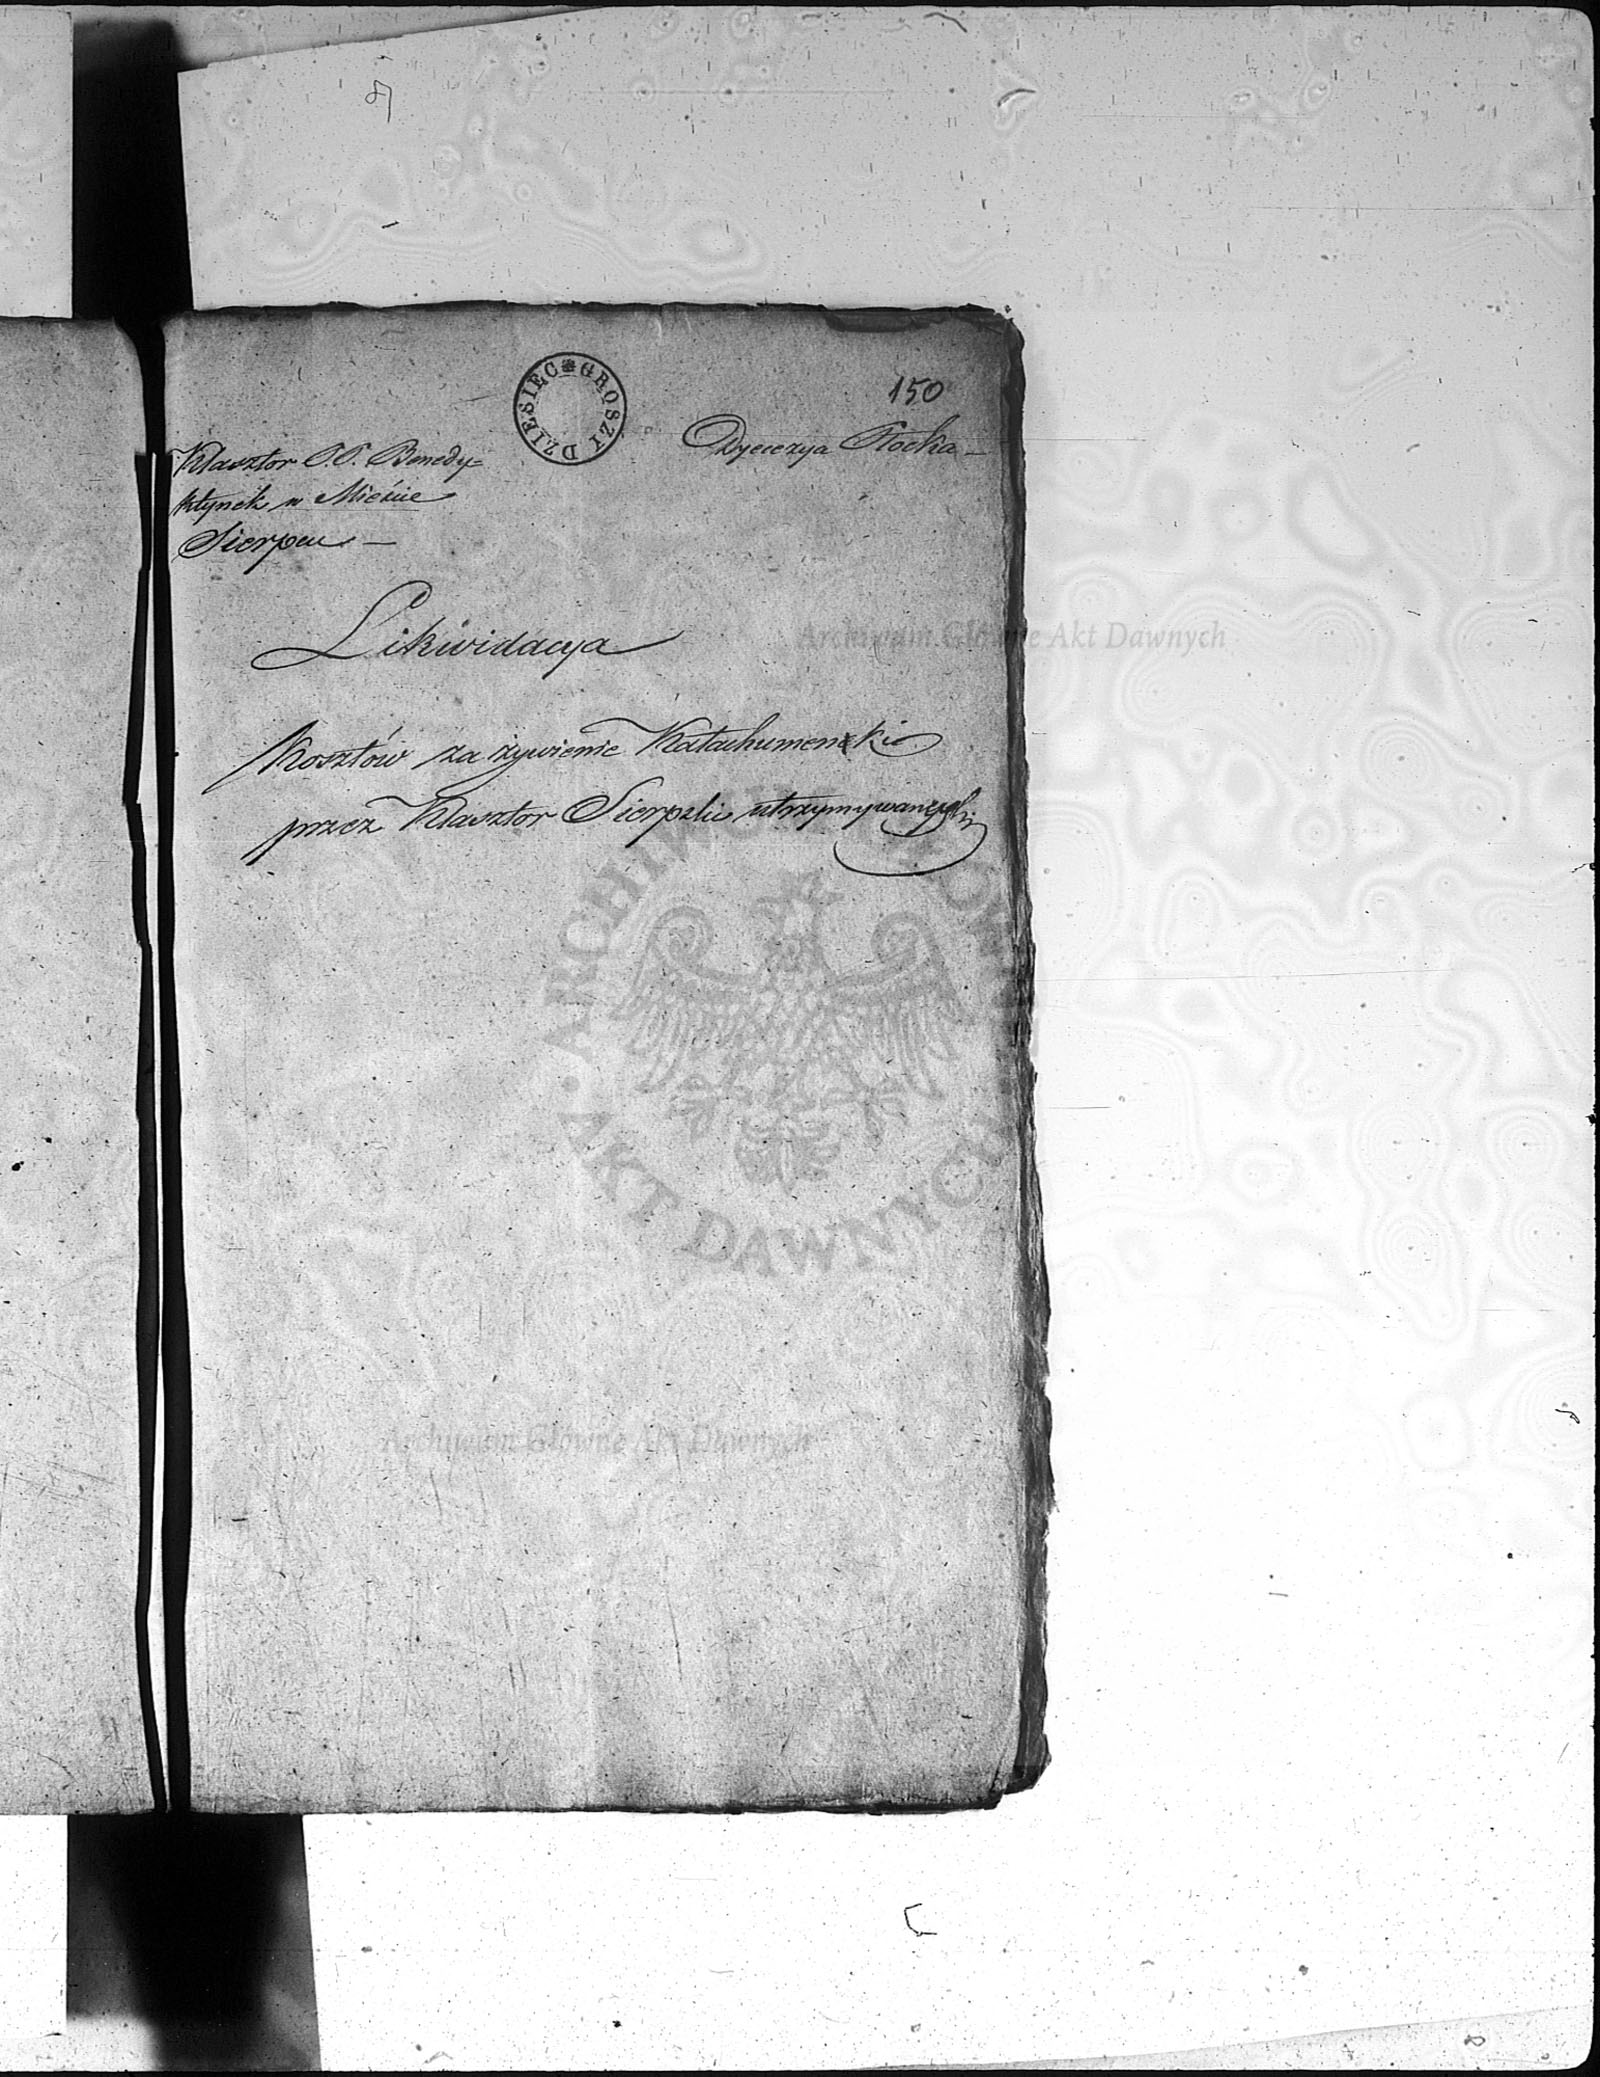 150
DZIESIEC GROSZY
Dyecezya Płocka
Klasztor P.P. Benedy=
ktynek w Mieście
Sierpcu
Likwidacya
Kosztów za żywienie Katachumenek
przez Klasztor Sierpski utrzymywanych
Archiwum Główne Akt Dawnych
ARCHIWUM GŁÓWNE AKT DAWNYCH
Archiwum Główne Akt Dawnych